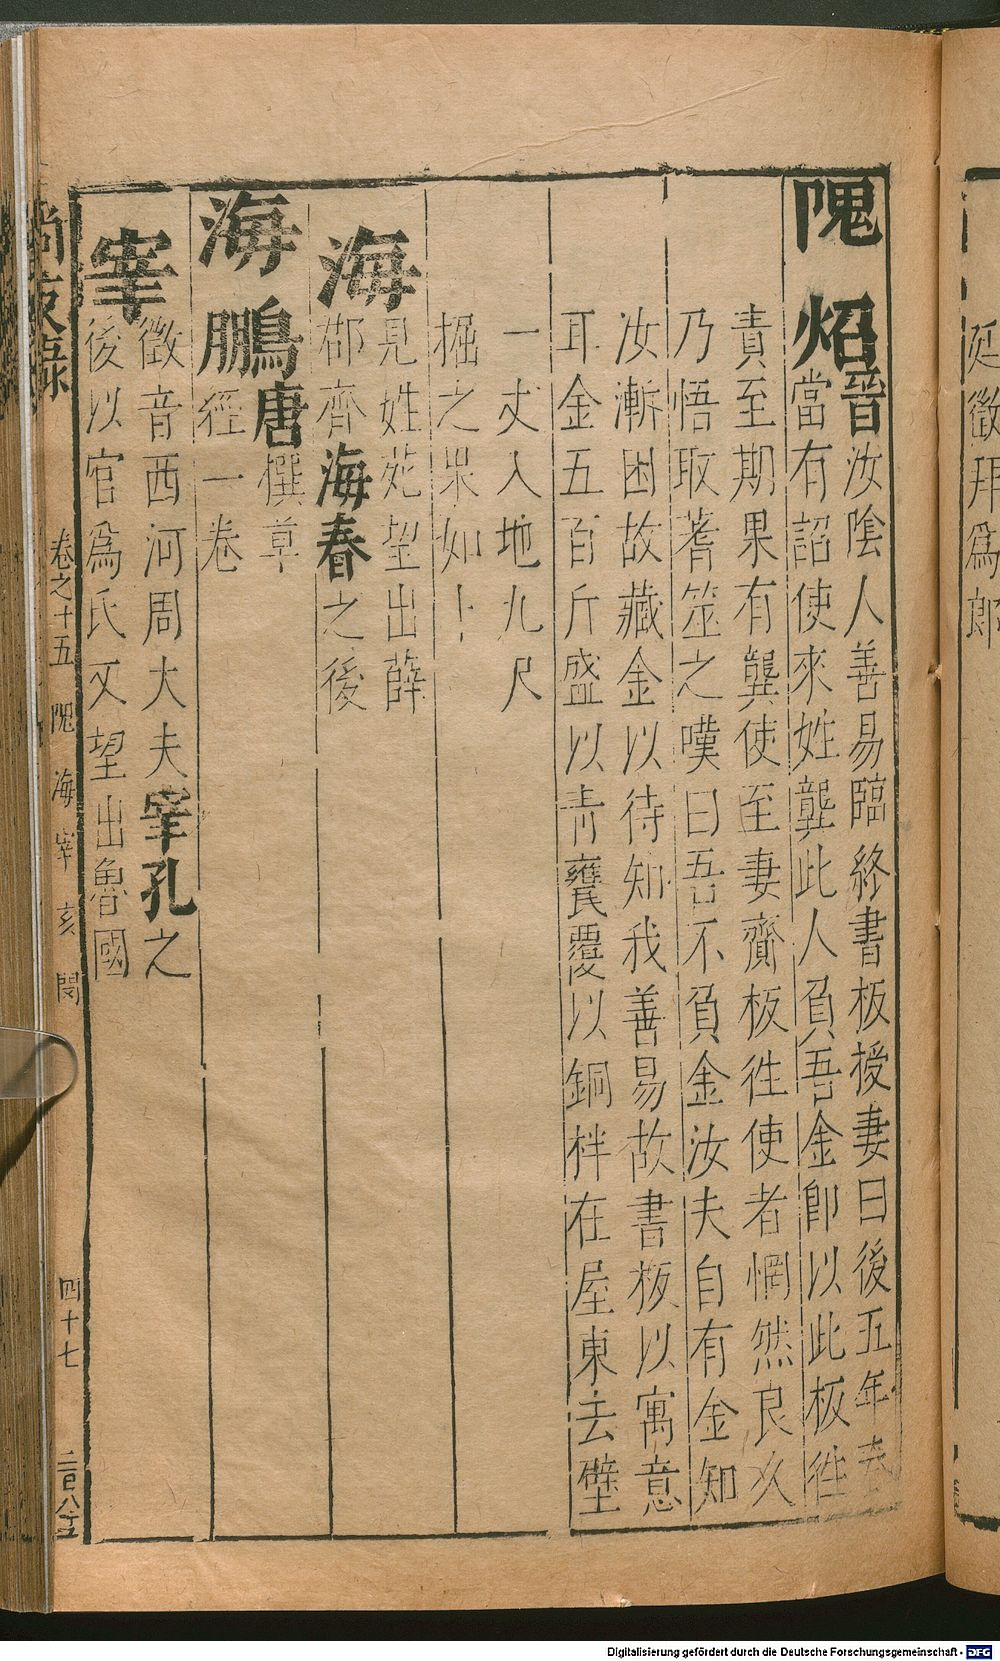 隗炤晉汝陰人善易臨終書板授妻曰後五年春
當有詔使來姓龔此人負吾金卽以此板徃
責至期果有龔使至妻齎板徃使者惘然良久
乃悟取蓍筮之嘆曰吾不負金汝夫自有金知
汝漸困故藏金以待知我善易故書板以寓意
耳金五百斤盛以靑甕覆以銅柈在屋東去壁
一丈入地九尺
掘之果如卜
海
見姓苑望出薛
郡齊海春之後
海鵬唐撰草
徑一卷
宰
徵音西河周大夫宰孔之
後以官爲氏又望出魯國
尚友錄
卷之十五 隗 海 宰 亥 閔
四十七
二百八十五
延徵拜爲郎
Digitalisierung gefördert durch die Deutsche Forschungsgemeinschaft - DFG